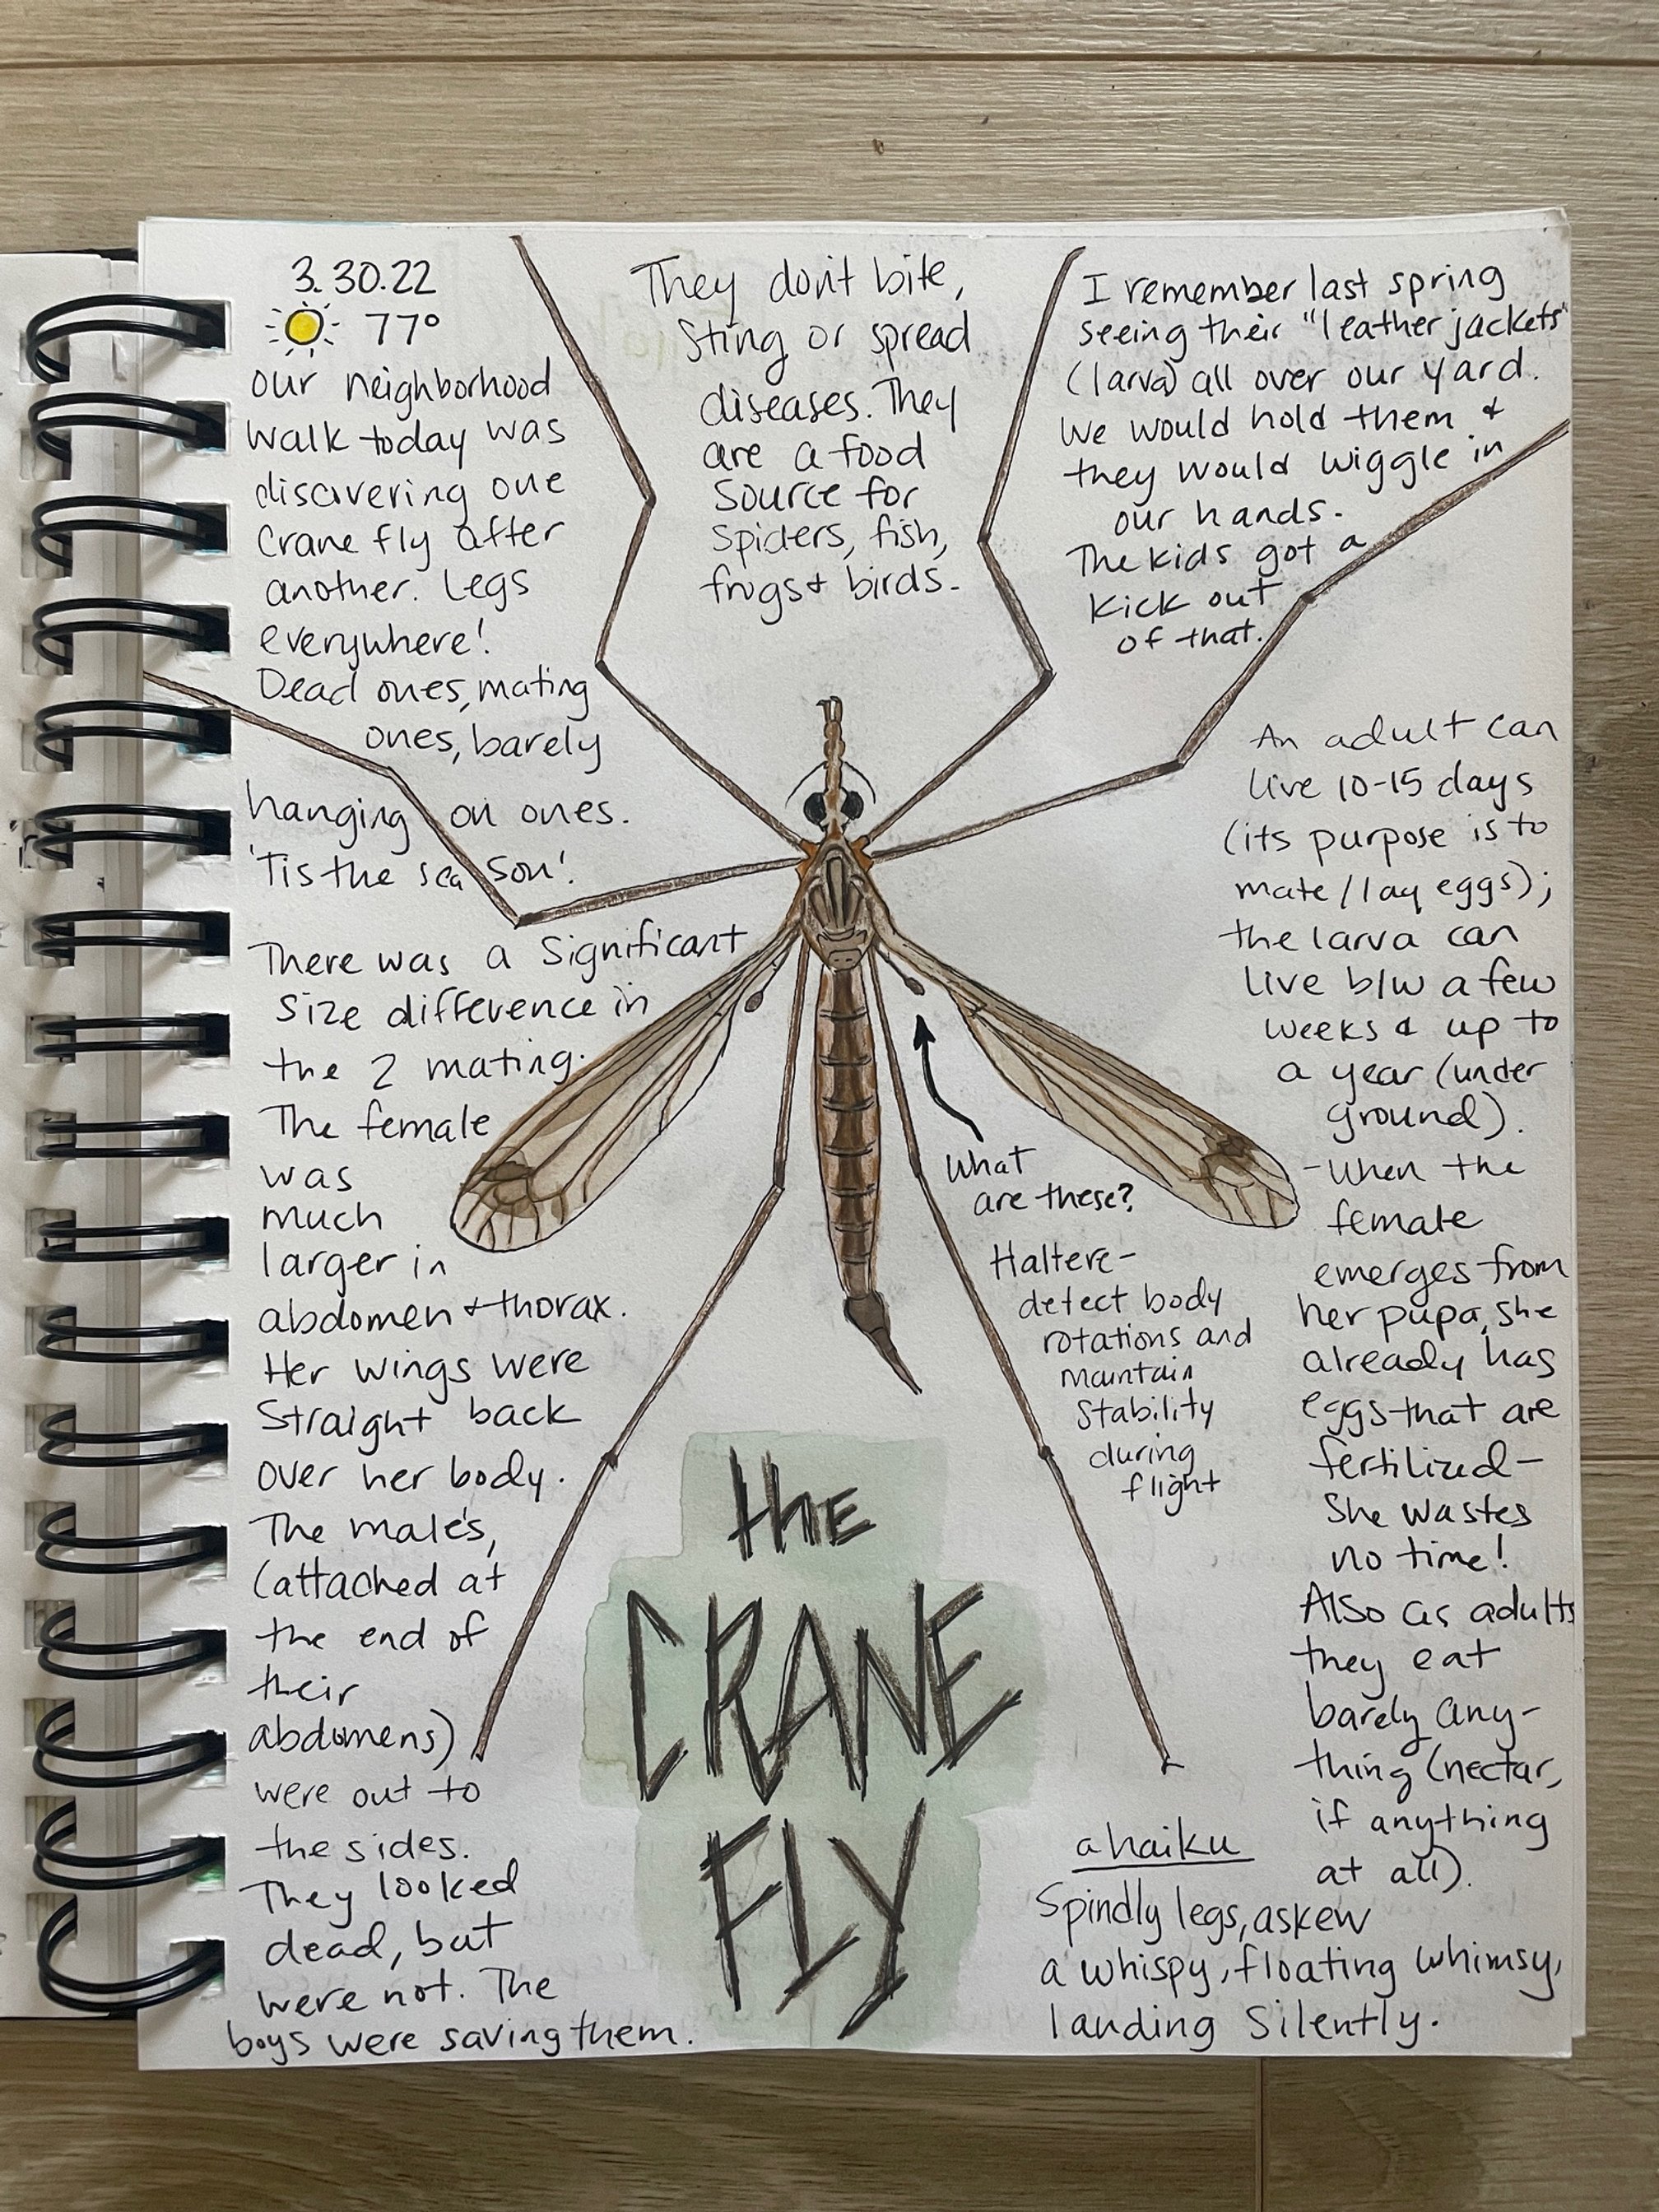 3.30.22
77°
our neighborhood
walk today was
discovering one
crane fly after
another. Legs
everywhere!
Dead ones, mating
ones, barely
hanging on ones.
'Tis the season!
There was a significant
size difference in
the 2 mating.
The female
was
much
larger in
abdomen & thorax.
Her wings were
straight back
over her body.
The male's,
(attached at
the end of
their
abdomens)
were out to
the sides.
They looked
dead, but
were not. The
boys were saving them.
They don't bite,
sting or spread
diseases. They
are a food
source for
spiders, fish,
frogs & birds.
I remember last spring
seeing their "leather jackets"
(larva) all over our yard.
We would hold them &
they would wiggle in
our hands.
The kids got a
kick out
of that.
An adult can
live 10-15 days
(its purpose is to
mate/lay eggs);
the larva can
live b/w a few
weeks & up to
a year (under
ground).
-When the
female
emerges from
her pupa, she
already has
eggs that are
fertilized-
She wastes
no time!
Also as adults
they eat
barely any-
thing (nectar,
if anything
at all).
What
are these?
Haltere-
detect body
rotations and
maintain
stability
during
flight
the
CRANE
FLY
a haiku
Spindly legs, askew
a whispy, floating whimsy,
landing silently.